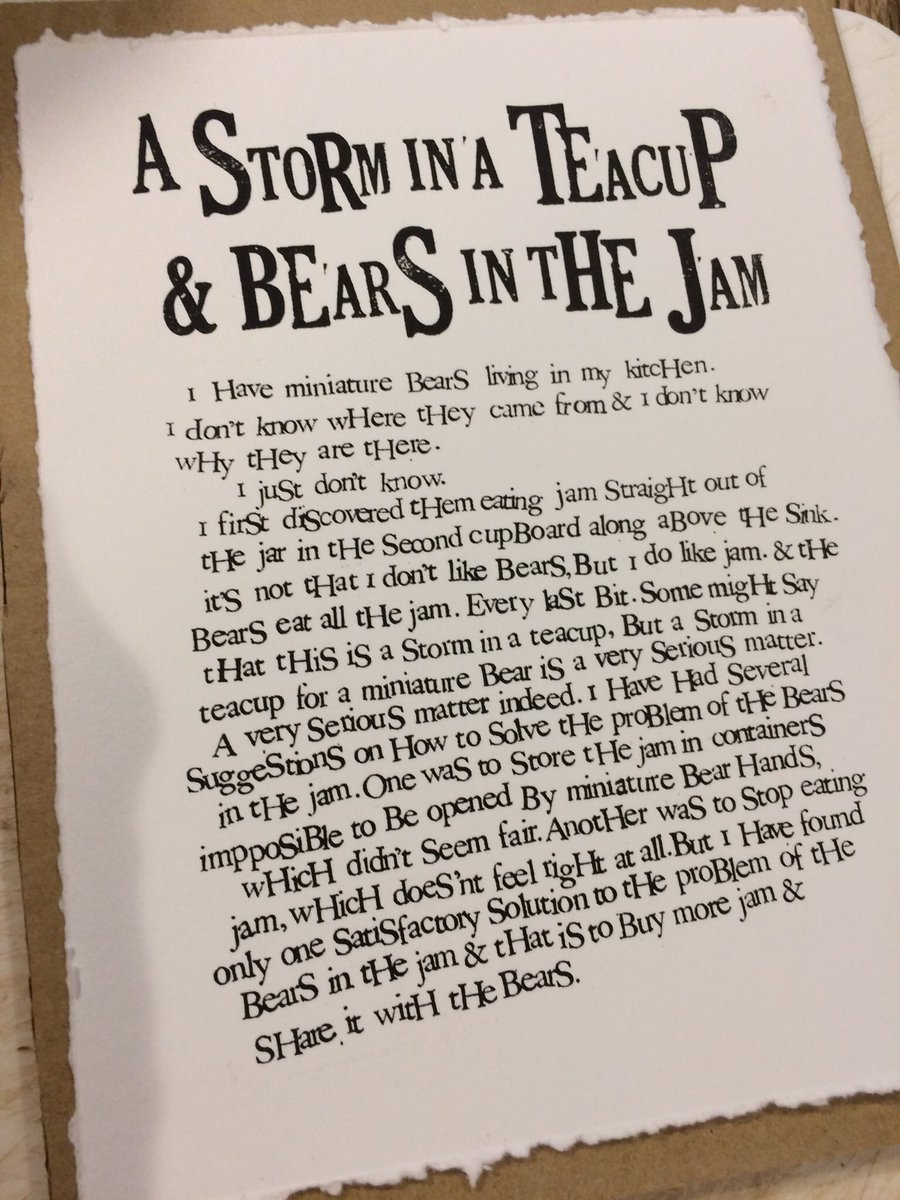 A StoRm in a Teacup
& BEarS in tHE Jam
I Have miniature BearS living in my kitcHen.
I don't know wHere tHey came from & I don't know
wHy tHey are tHere.
I juSt don't know.
I firSt diScovered tHem eating jam StraigHt out of
tHe jar in tHe Second cupBoard along aBove tHe Sink.
it'S not tHat I don't like BearS, But I do like jam. & tHe
BearS eat all tHe jam. Every laSt Bit. Some migHt Say
tHat tHiS iS a Storm in a teacup, But a Storm in a
teacup for a miniature Bear iS a very SeriouS matter.
A very SeriouS matter indeed. I Have Had Several
SuggeStionS on How to Solve tHe proBlem of tHe BearS
in tHe jam. One waS to Store tHe jam in containerS
imppoSiBle to Be opened By miniature Bear HandS,
wHicH didn't Seem fair. AnotHer waS to Stop eating
jam, wHicH doeS'nt feel rigHt at all. But I Have found
only one SatiSfactory Solution to tHe proBlem of tHe
BearS in tHe jam & tHat iS to Buy more jam &
SHare it witH tHe BearS.